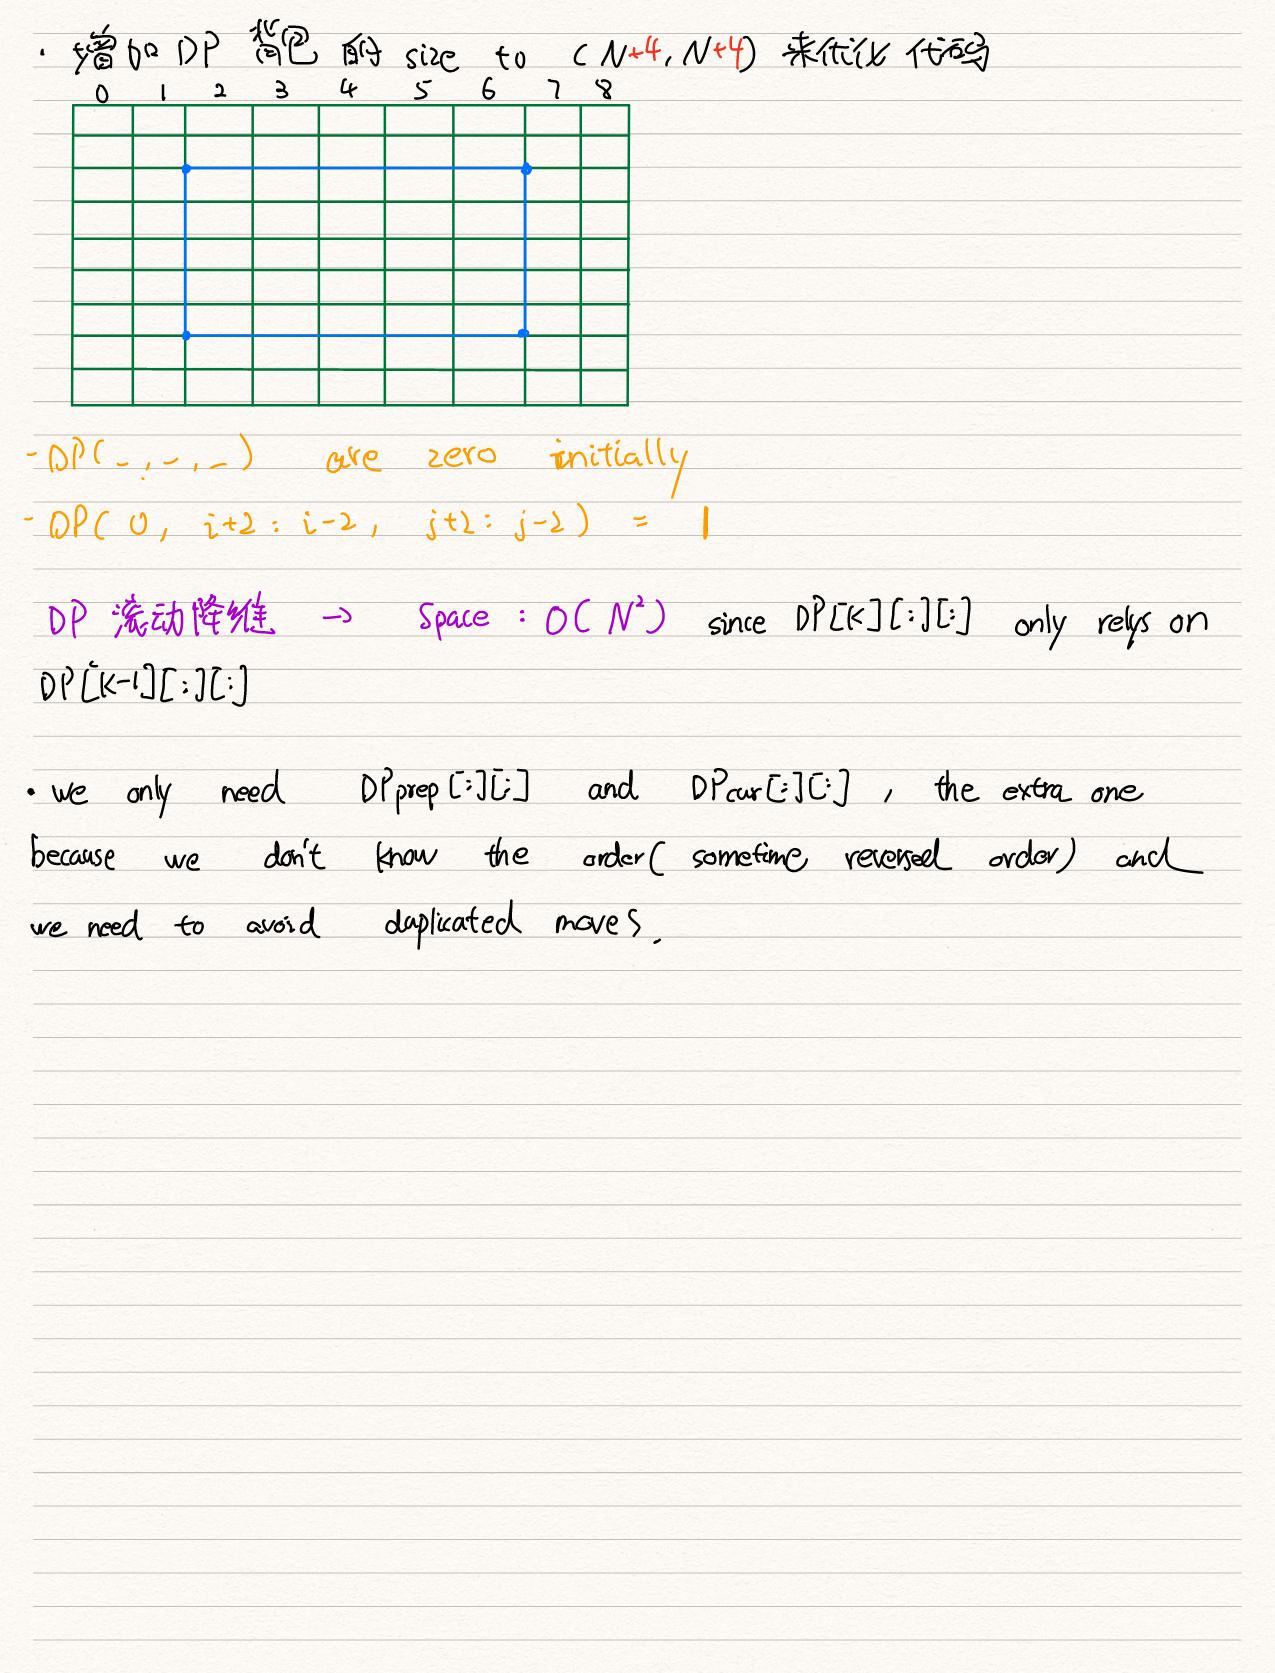 · 增加 DP 背包 的 size to (N+4, N+4) 来优化 代码
0 1 2 3 4 5 6 7 8
- DP(-,-,-) are zero initially
- DP( 0, i+2 : i-2, j+2 : j-2 ) = 1
DP 滚动降维 → Space : O( N² ) since DP[K][:][:] only relys on
DP[K-1][:][:]
· we only need DPprep[:][:] and DPcur[:][:] , the extra one
because we don't know the order( sometime reversed order) and
we need to avoid duplicated moves.